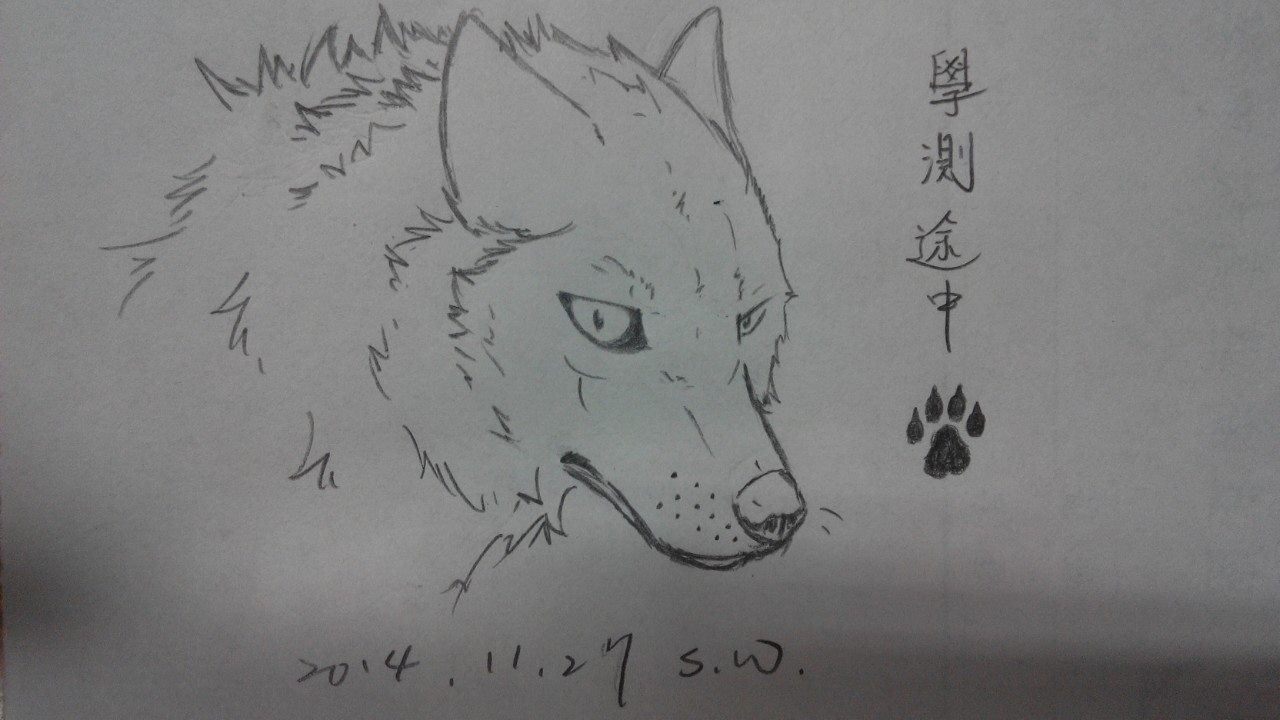 學測途中
2014.11.27 S.W.